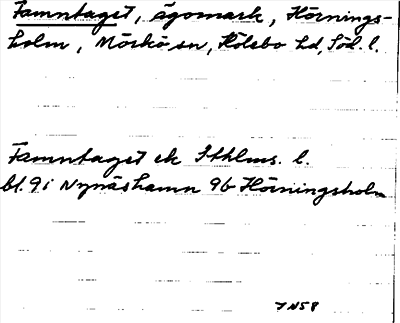 Famntaget, ägomark, Hörnings-
holm, Mörkö sn, Hölebo hd, Söd. l.
Famntaget ek Sthlms. l.
bl. 9i Nynäshamn 9b Hörningsholm
JN58